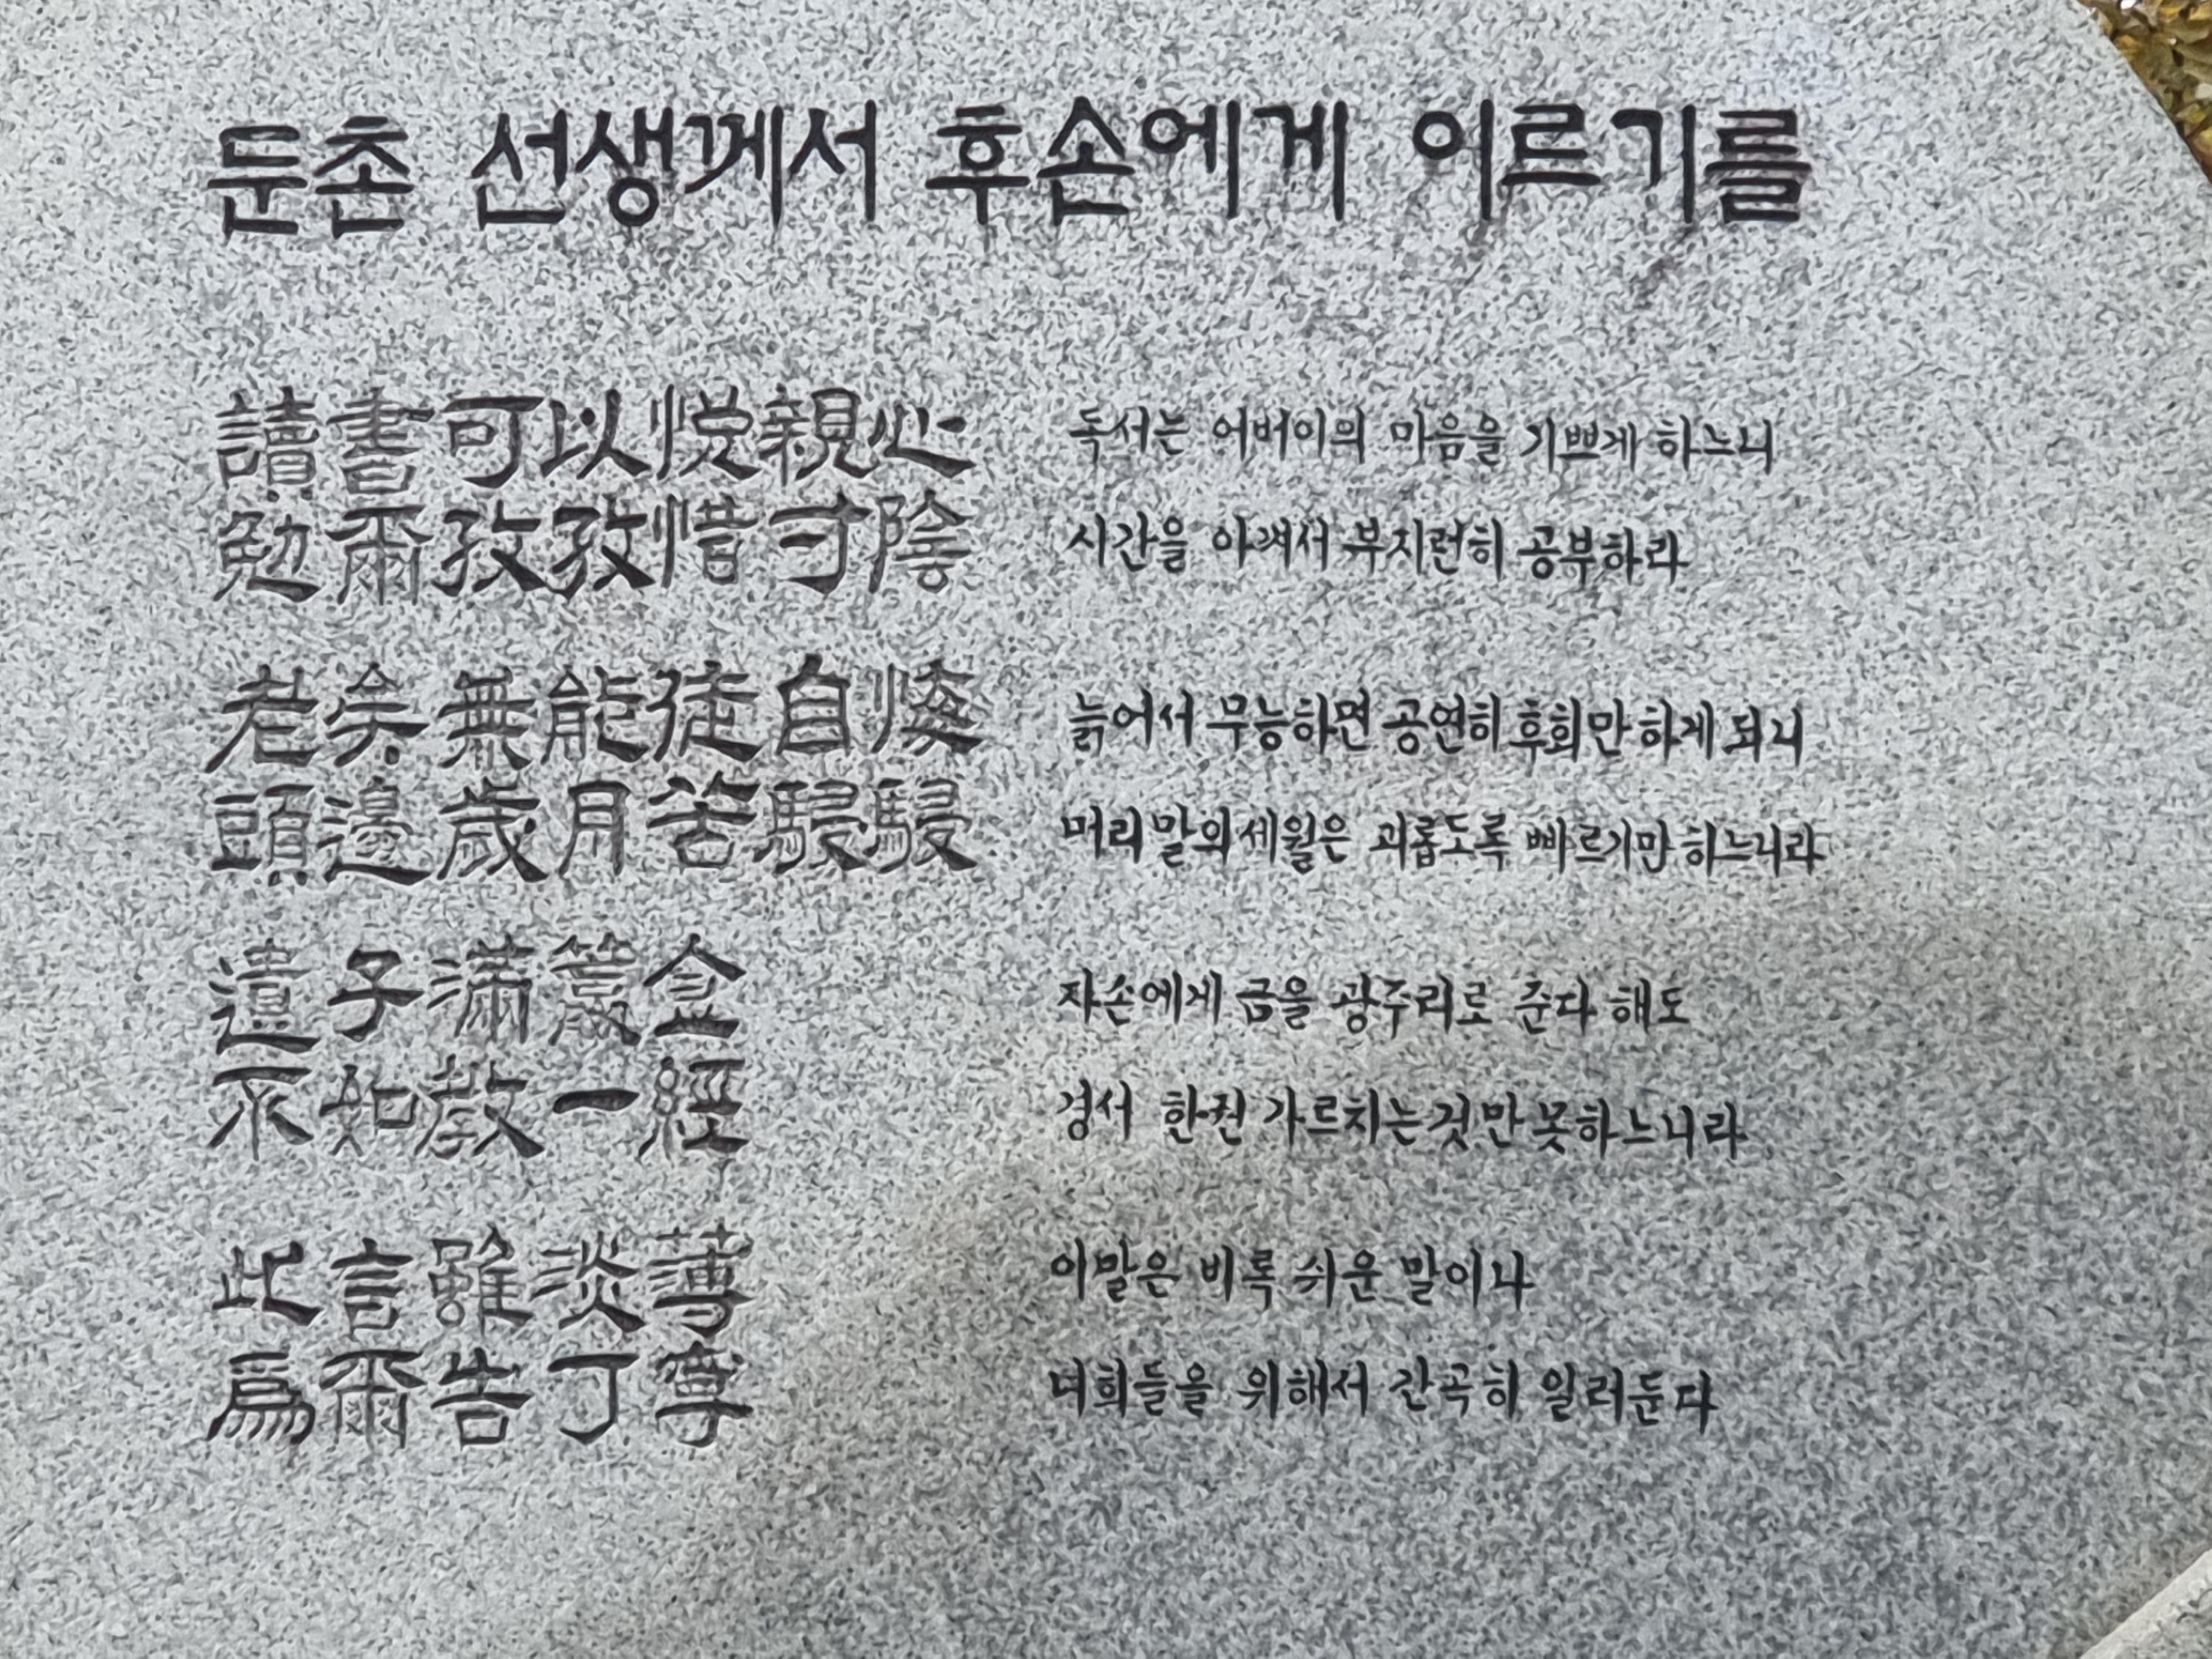 둔촌 선생께서 후손에게 이르기를
讀書可以悅親心 독서는 어버이의 마음을 기쁘게 하느니
勉爾孜孜惜寸陰 시간을 아껴서 부지런히 공부하라
老矣無能徒自悔 늙어서 무능하면 공연히 후회만 하게 되니
頭邊歲月苦駸駸 머리말의 세월은 괴롭도록 빠르기만 하느니라
遺子滿籝金 자손에게 금을 광주리로 준다 해도
不如敎一經 경서 한권 가르치는것만 못하느니라
此言雖淡薄 이말은 비록 쉬운 말이나
爲爾告丁寧 너희들을 위해서 간곡히 일러둔다